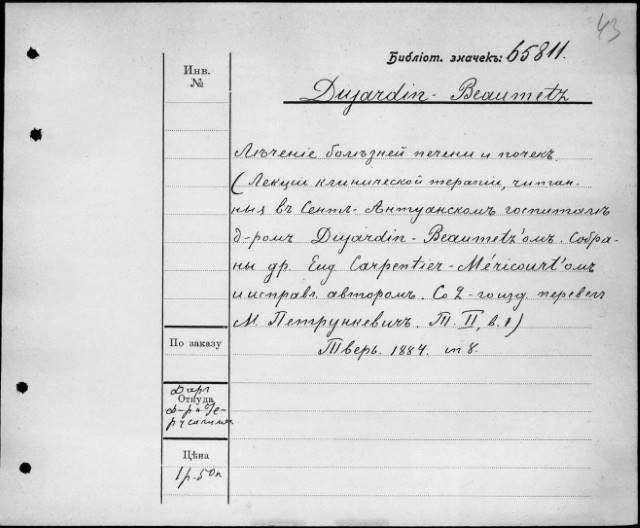 43
Библіот. значекъ: 65811.
Инв.
№
Dujardin-Beaumetz
Лѣченіе болѣзней печени и почекъ.
(Лекціи клинической терапіи, читан-
ныя въ Сентъ-Антуанскомъ госпиталѣ
д-ромъ Dujardin-Beaumetz'омъ. Собра-
ны др. Eug Carpentier-Méricourt'омъ
и исправл. авторомъ. Со 2-го изд. перевелъ
М. Петрункевичъ. Т. II, в. 1)
Тверь. 1884. in 8.
По заказу
Даръ
Откуда
Д-ра
Цѣна
1 р. 50 к